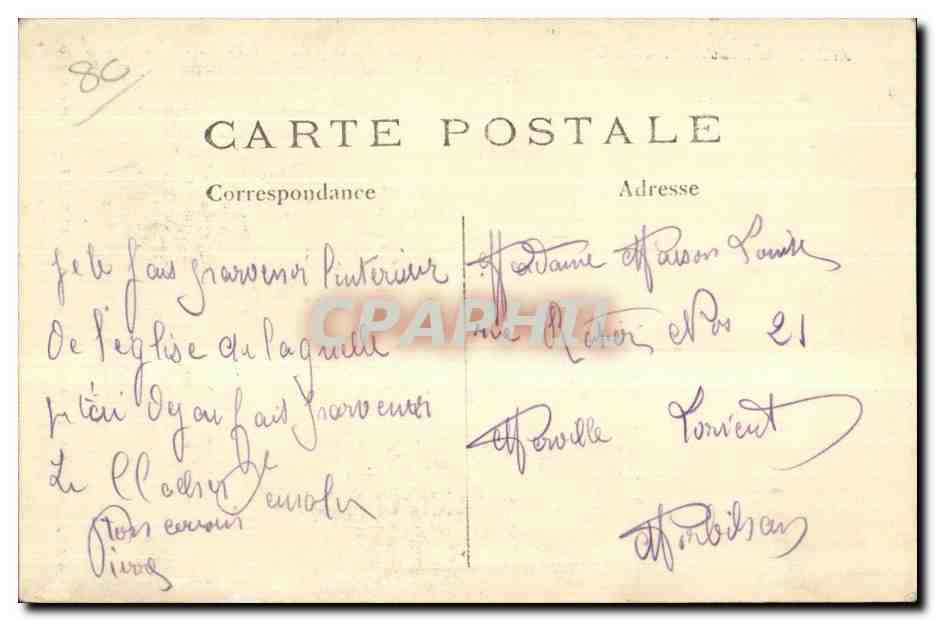 80
CARTE POSTALE
Correspondance
Adresse
je te fais parvenir l'interieur
de l'église de laquelle
je t'ai deja fais parvenir
Le
Ton
Madame Maison Louise
Rue Nos 21
Merville Lorient
Morbihan
CPAPHIL